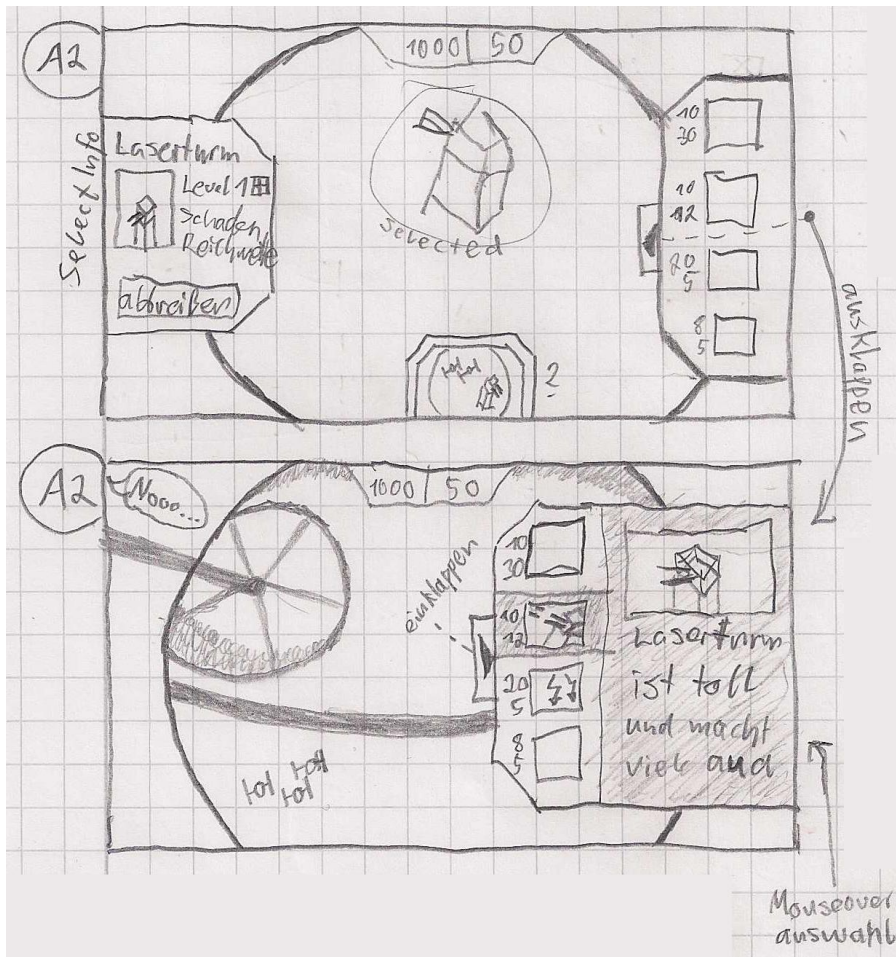 A2
1000 50
SelectInfo
Laserturm
Level 1
Schaden
Reichweite
abbreißen
selected
10
30
10
12
20
5
8
5
?
ausklappen
A2
Nooo...
1000 50
einklappen
10
30
10
12
20
5
8
5
Laserturm
ist toll
und macht
viel aua
Mouseover
auswahl